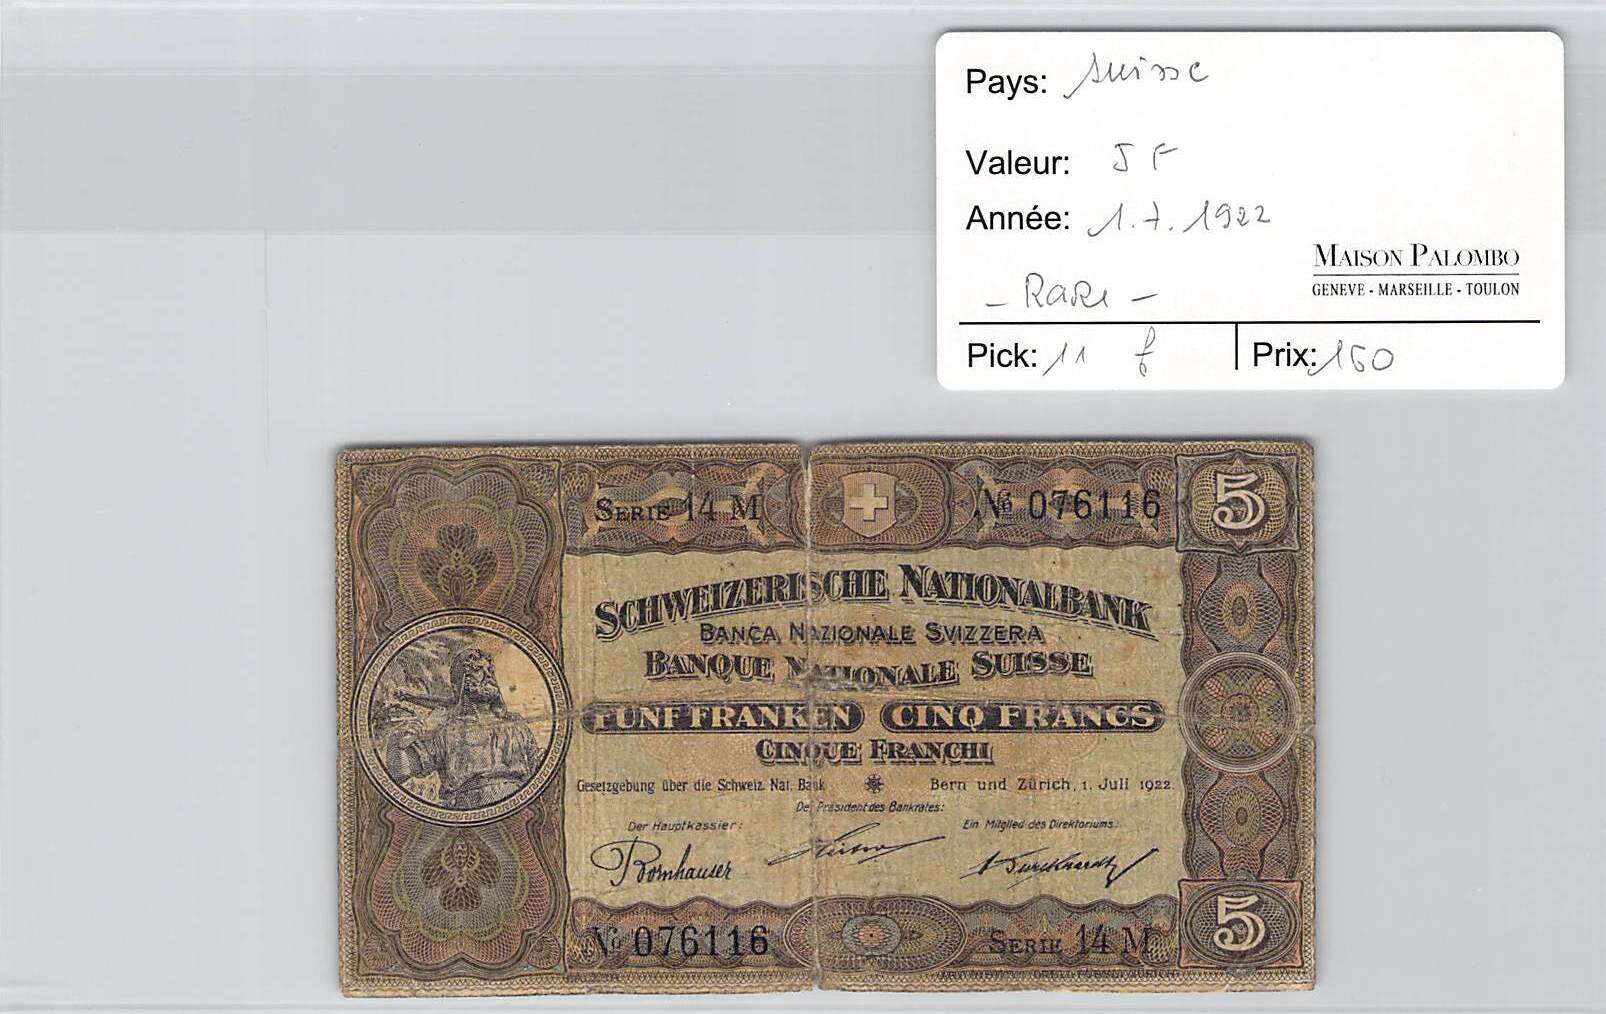 Pays: Suisse
Valeur: 5 F
Année: 1.7.1922
MAISON PALOMBO
GENEVE - MARSEILLE - TOULON
- RaRe -
Pick: 11 f
Prix: 150
SERIE 14 M
№ 076116
5
SCHWEIZERISCHE NATIONALBANK
BANCA NAZIONALE SVIZZERA
BANQUE NATIONALE SUISSE
FÜNF FRANKEN CINQ FRANCS
CINQUE FRANCHI
Gesetzgebung über die Schweiz. Nat. Bank
Bern und Zürich, 1. Juli 1922.
Der Präsident des Bankrates:
Der Hauptkassier:
Ein Mitglied des Direktoriums:
Bornhauser
Burckhardt
№ 076116
SERIE 14 M
5